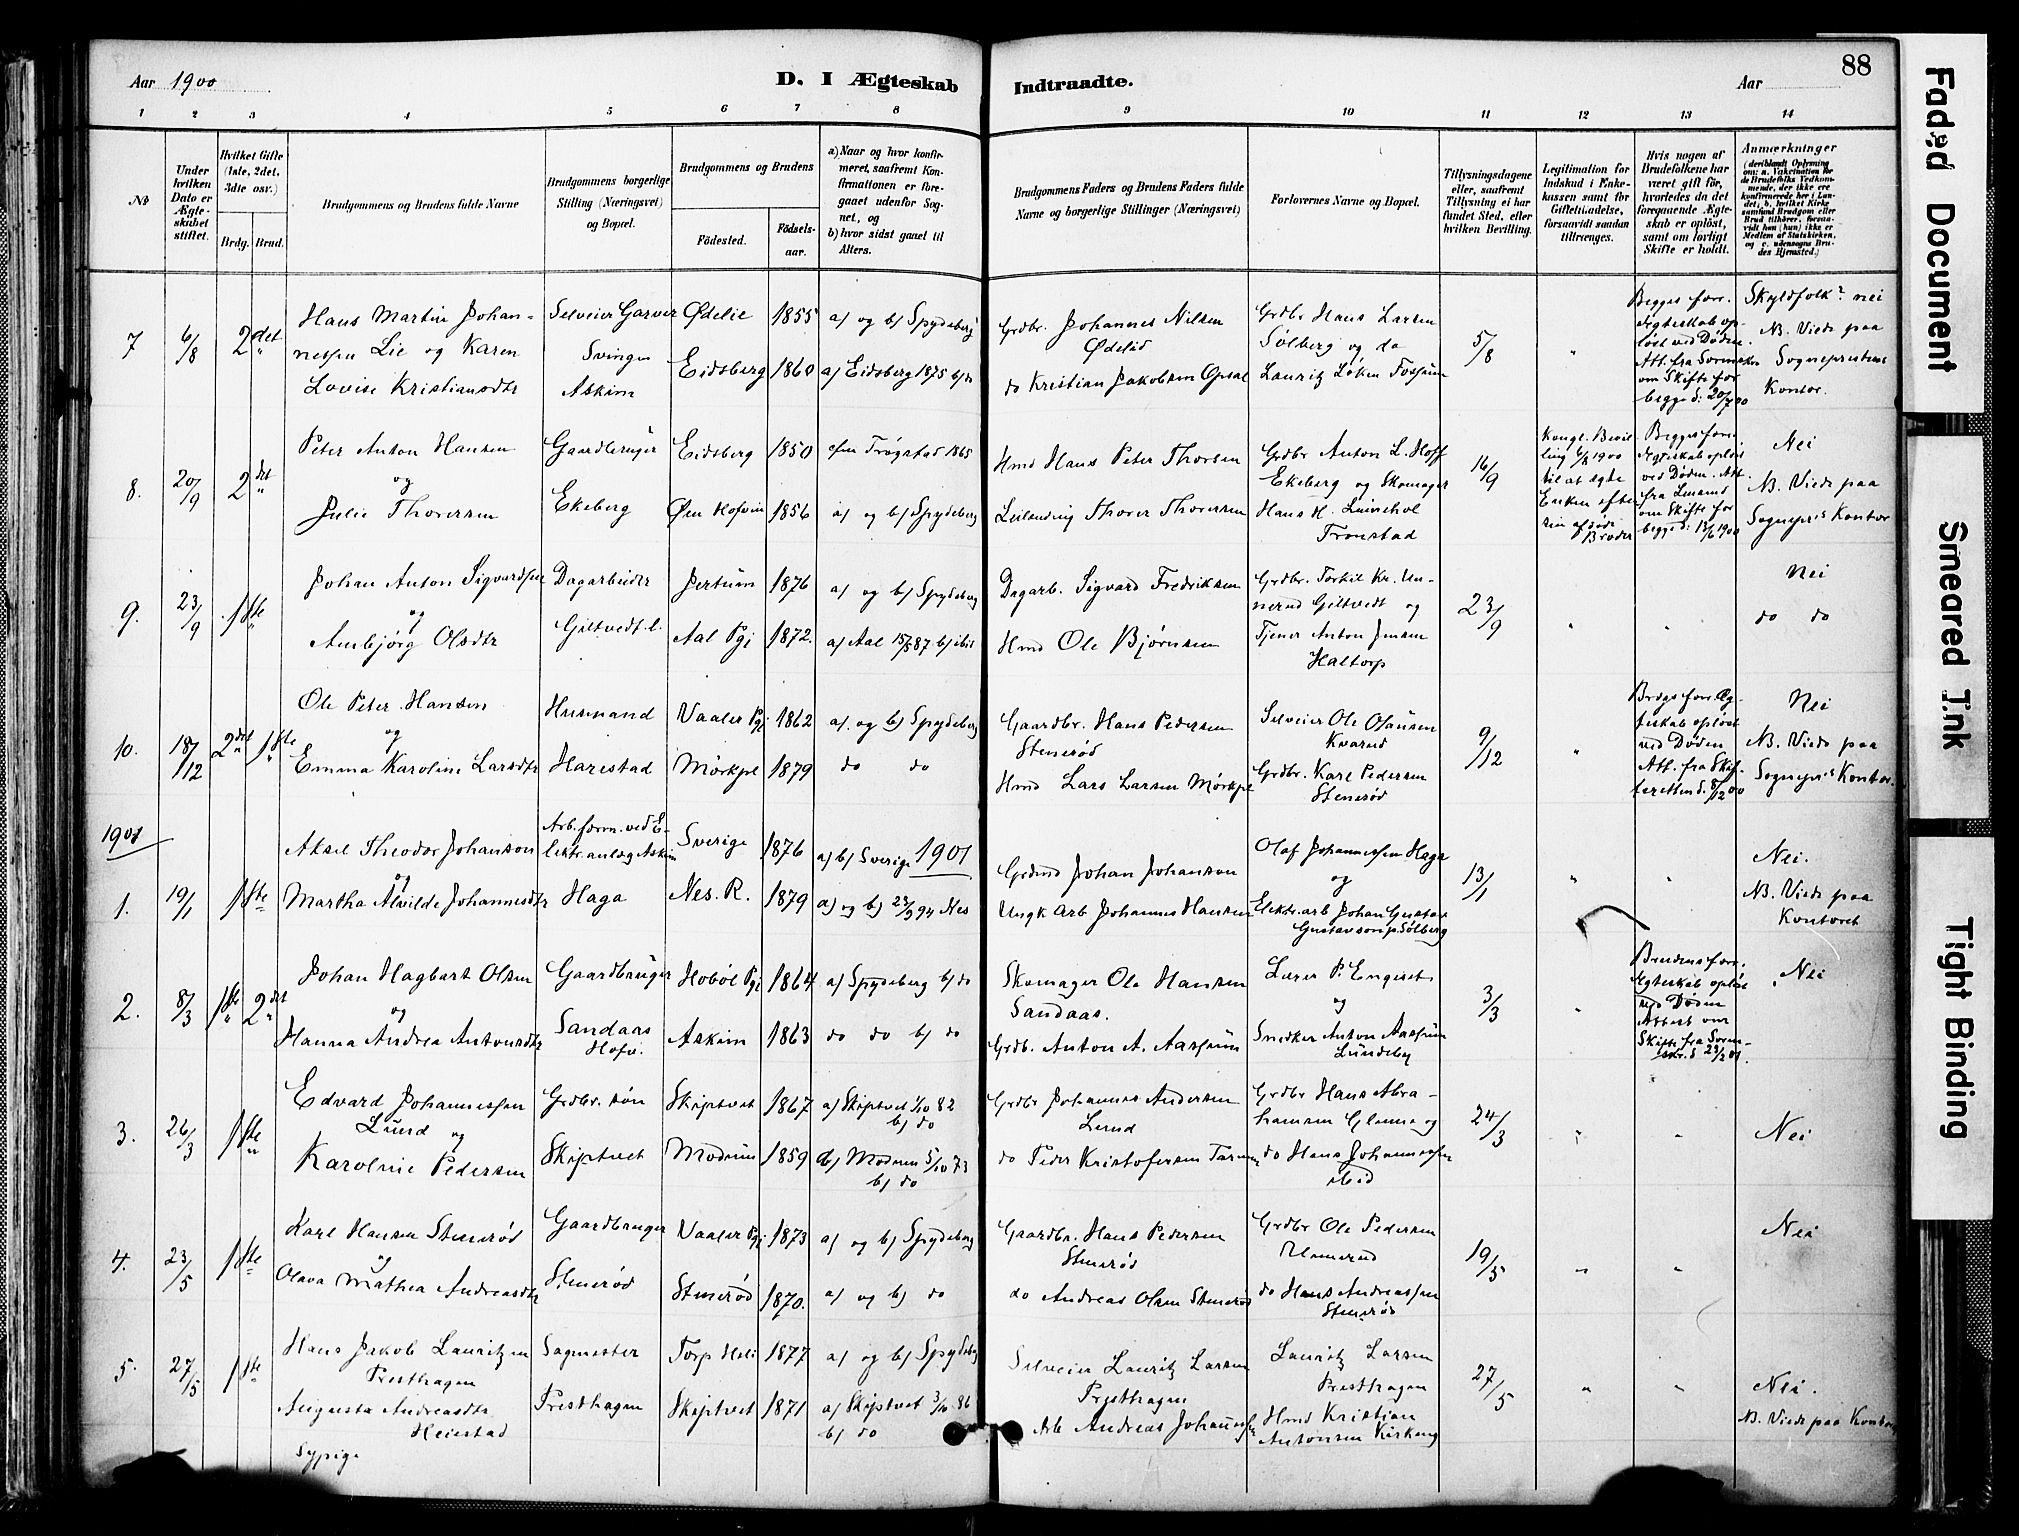 88
Aar 1900
D. I Ægteskab Indtraadte.
Aar
1 2 3 4 5 6 7 8 9 10 11 12 13 14
No
Under hvilken Dato er Ægteskabet stiftet.
Hvilket Gifte (1ste, 2det, 3die osv.)
Brdg. Brud.
Brudgommens og Brudens fulde Navne
Brudgommens borgerlige Stilling (Næringsvei) og Bopæl.
Brudgommens og Brudens
Fødested.
Fødselsaar.
a) Naar og hvor konfirmeret, saafremt Konfirmationen er foregaaet udenfor Sognet, og
b) hvor sidst gaaet til Alters.
Brudgommens Faders og Brudens Faders fulde Navne og borgerlige Stillinger (Næringsvei)
Forlovernes Navne og Bopæl.
Tillysningsdagene eller, saafremt Tillysning ei har fundet Sted, efter hvilken Bevilling.
Legitimation for Indskud i Enkekassen samt for Giftetilladelse, forsaavidt saadan tiltrænges.
Hvis nogen af Brudefolkene har været gift før, hvorledes da det foregaaende Ægteskab er opløst, samt om lovligt Skifte er holdt.
Anmærkninger
(deriblandt Oplysning om: a. Vakcination for de Brudefolks Vedkommende, der ikke ere konfirmerede her i Landet, b. hvilket Kirkesamfund Brudgom eller Brud tilhører, forsaavidt han (hun) ikke er Medlem af Statskirken, og c. udensogns Brudes Hjemsted.)
7 6/8 2det "
Hans Martin Johannessen Lie og Karen Lovise Kristiansdtr
Selveier Garver Svingen Askim
Ødelie 1855 a) og b) Spydeberg
Eidsberg 1860 a) Eidsberg 1875 b) do
Grdbr. Johannes Nilsen Ødelie
do Kristian Jakobsen Opsal
Grdbr Hans Larsen Solberg og do
Lauritz Løken Fossum
5/8 "
Begges forr. Ægteskab opløst ved Døden. Att. fra Sorenskr om Skifte for begge d: 20/7 00
Skyldfolk? nei
NB. Viede paa Sogneprestens Kontor.
8. 20/9 2det "
Peter Anton Hansen
og
Julie Thoresen
Gaardbruger
Ekeberg
Eidsberg 1850 Trøgstad 1865
Øen Hofvin 1856 a) og b) Spydeberg
Hmd Hans Peter Thorsen
Leilending Thorer Thoresen
Grdbr Anton L. Hoff
Ekeberg og Skomager
Hans H.
Tronstad
16/9
Kongl. Bevilling 6/8 1900 til at egte Enken efter sin afdøde Broder
Begges forr. Ægteskab opløst ved Døden. Att. fra Lensmd om Skifte for begge d: 13/6 1900
Nei
NB. Viede paa
Sognepr's Kontor
9. 23/9 1ste "
Johan Anton Sigvardsen
og
Anbjørg Olsdtr
Dagarbeider
Giltvedt e.
Jertum 1876 a) og b) Spydeberg
Aal Pgj 1872. a) Aal 15/5 87 b) ibid
Dagarb. Sigvard Fredriksen
Hmd Ole Bjørnsen
Grdbr. Torkil Kr. Unnerud Giltvedt og
Tjener Anton Jensen
Haltorp
23/9 " "
Nei
do do
10. 18/12 2det " 1ste "
Ole Peter Hansen
og
Emma Karoline Larsdtr
Husmand
Harestad
Vaaler Pgj 1862 a) og b) Spydeberg
Mørkpl 1879 do do
Gaardbr. Hans Pedersen
Stenerød
Hmd Lars Larsen Mørkpl
Selveier Ole Olausen
Kvarud
Grdbr. Karl Pedersen
Stenerød
9/12 "
Brdgs forr. Ægteskab opløst ved Døden Att. fra Skifteretten d. 8/12 00
Nei
NB. Viede paa
Sognepr's Kontor.
1901
1. 19/1 1ste
Aksel Theodor Johanson
og
Martha Alvilde Johannesdtr
Arb.form. ved Elektr.anlæg Askim
Haga
Sverige 1876 a) b) Sverige 1901
Nes. R. 1879 a) og b) 23/9 94 Nes
Grdmd Johan Johanson
Ungk Arb Johannes Hansen
Olaf Johannessen Haga
og
Elektr.arb Johan Gustav
Gustavson p. Solberg
13/1 " "
Nei.
NB. Viede paa
Kontoret
2. 8/3 1ste " 2det "
Johan Hagbart Olsen
og
Hanna Andrea Antonsdtr
Gaardbruger
Sandaas
Hofv.
Hobøl Pgj 1864 a) Spydeberg b) do
Askim 1863 do do b) do
Skomager Ole Hansen
Sandaas.
Grdb. Anton A. Aassum
Lærer P. Engeset
og
Snedker Anton Aassum
Lundeby
3/3 "
Brudens forr. Ægteskab opløst ved Døden Attest om Skifte fra Sorenskr. d 29/2 01.
Nei
3. 26/3 1ste "
Edvard Johannessen
Lund og
Karoline Pedersen
Grdbr. søn
Skiptvet
Skiptvet 1867 a) Skiptvet 1/10 82
b) do
Modum 1859 a) Modum 5/10 73
b) do
Grdbr Johannes Andersen
Lund
do Peder Kristofersen
Grdbr Hans Abrahamsen Glenne og
do Hans Johannessen
ibid
24/3 " "
Nei
4. 23/5 1ste
Karl Hansen Stenerød
og
Olava Mathea Andreasdtr
Gaardbruger
Stenerød
Vaaler Pgj 1873 a) og b) Spydeberg
Stenerød 1870. a) og b) do
Gaardbr. Hans Pedersen
Stenerød
do Andreas Olsen Stenerød
Grdbr Ole Pedersen
Unnerud
do Hans Andreassen
Stenerød
19/5 " "
Nei
5. 27/5 1ste
Hans Jakob Lauritzen
Presthagen
Augusta Andreasdtr
Heiestad
Sypige
Sagmester
Presthagen
Torp Heli 1877 a) og b) Spydeberg
Skiptvet 1871 a) Skiptvet 3/10 86
b) do
Selveier Lauritz Larsen
Presthagen
Arb Andreas Johannesen
Lauritz Larsen
Presthagen
Hmd Kristian
Antonsen Kirkeng
27/5 " "
Nei.
NB. Viede paa Kontor
Faded Document
Smeared Ink
Tight Binding